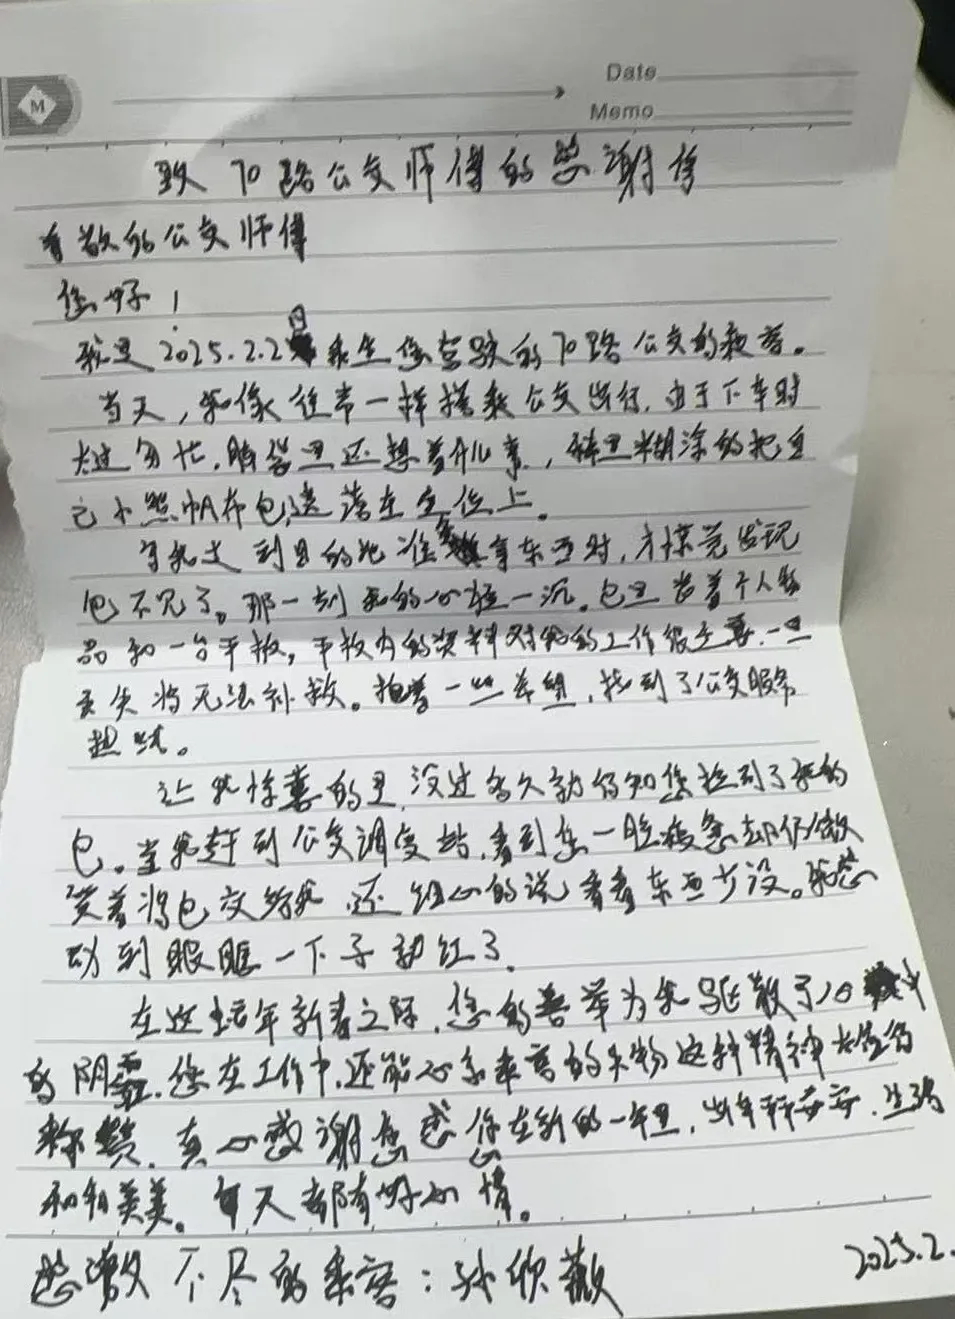 Date
Memo
M
致70路公交师傅的感谢信
尊敬的公交师傅
您好！
我是2025.2.2日乘坐您驾驶的70路公交的乘客。
当天，我像往常一样搭乘公交出行，由于下车时
太过匆忙，脑袋里还想着别的事，稀里糊涂的把自
己小熊帆布包遗落在座位上。
当我走到目的地准备拿东西时，才惊觉发现
包不见了。那一刻我的心猛一沉。包里装着个人物
品和一台平板，平板内的资料对我的工作很重要，一旦
丢失将无法补救。抱着一丝希望，找到了公交服务
热线。
让我惊喜的是，没过多久就得知您捡到了我的
包。当我赶到公交调度站，看到您一脸疲惫却仍微
笑着将包交给我，还细心的说看看东西少没。我感
动到眼眶一下子就红了。
在这蛇年新春之际，您的善举为我驱散了心中
的阴霾，您在工作中，还能心系乘客的失物这种精神太值得
称赞，真心感谢您 您在新的一年里，岁岁平安，生活
和和美美。每天都有好心情。
感激不尽的乘客：孙欣薇
2025.2.